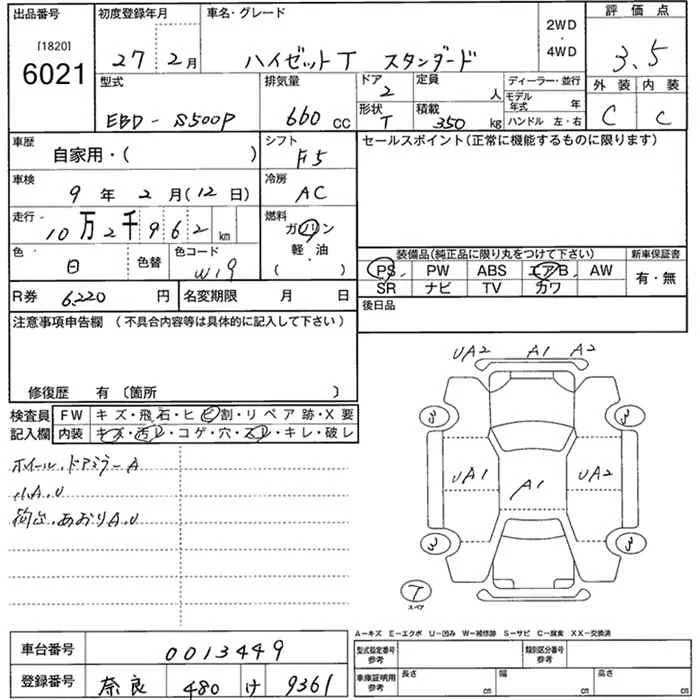 出品番号 初度登録年月 車名・グレード 評価点
[1820]
6021
27 2月 ハイゼットT スタンダード 2WD・4WD 3.5
型式 排気量 ドア 2 定員 人 ディーラー・並行 外装 内装
EBD-S500P 660cc 形状 T 積載 350kg モデル年式 年 ハンドル 左・右 C C
車歴 自家用・( ) シフト F5 セールスポイント(正常に機能するものに限ります)
車検 9年2月(12日) 冷房 AC
走行 10万2千962km 燃料 ガソリン・軽油・( )
色 白 色替 色コード W19
装備品(純正品に限り丸をつけて下さい) 新車保証書
PS PW ABS エアB AW 有・無
SR ナビ TV カワ
R券 6,220円 名変期限 月 日 後日品
注意事項申告欄 (不具合内容等は具体的に記入して下さい)
修復歴 有 〔箇所 〕
検査員記入欄 FW キズ・飛石・ヒビ割・リペア跡・X要
内装 キズ・汚レ・コゲ・穴・スレ・キレ・破レ
ホイール、ドアミラーA
小A、U
荷台、あおりA、U
UA2 A1 A2
3 3
UA1 A1 UA2
3 3
T
スペア
A-キズ E-エクボ U-凹み W-補修跡 S-サビ C-腐食 XX-交換済
車台番号 0013449
登録番号 奈良 480 け 9361
型式指定番号 参考 類別区分番号 参考
車庫証明用 参考 長さ cm 幅 cm 高さ cm